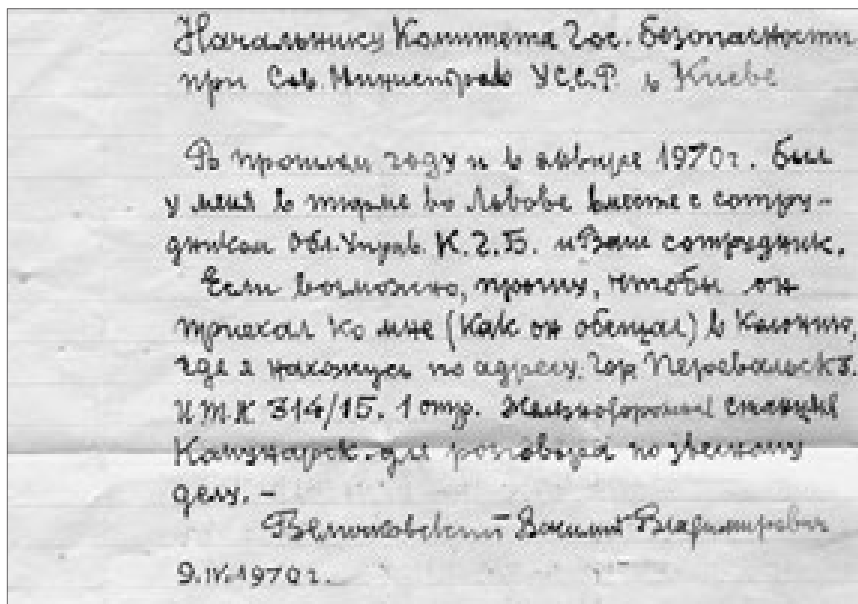 Начальнику Комитета Гос. безопасности
при Сов. Министров УС.С.Р. в Киеве
В прошлом году и в январе 1970г. был
у меня в тюрьме во Львове вместе с сотру-
дником Обл. Управ. К.Г.Б. и Ваш сотрудник.
Если возможно, прошу, чтобы он
приехал ко мне (как он обещал) в колонию,
где я нахожусь по адресу: Гор. Перевальск
И.Т.К 314/15. 1 отр. Железнодорожная станция
Комунарск. для розговора по
делу. –
Величковский Василий Владимирович
9.IV.1970г.